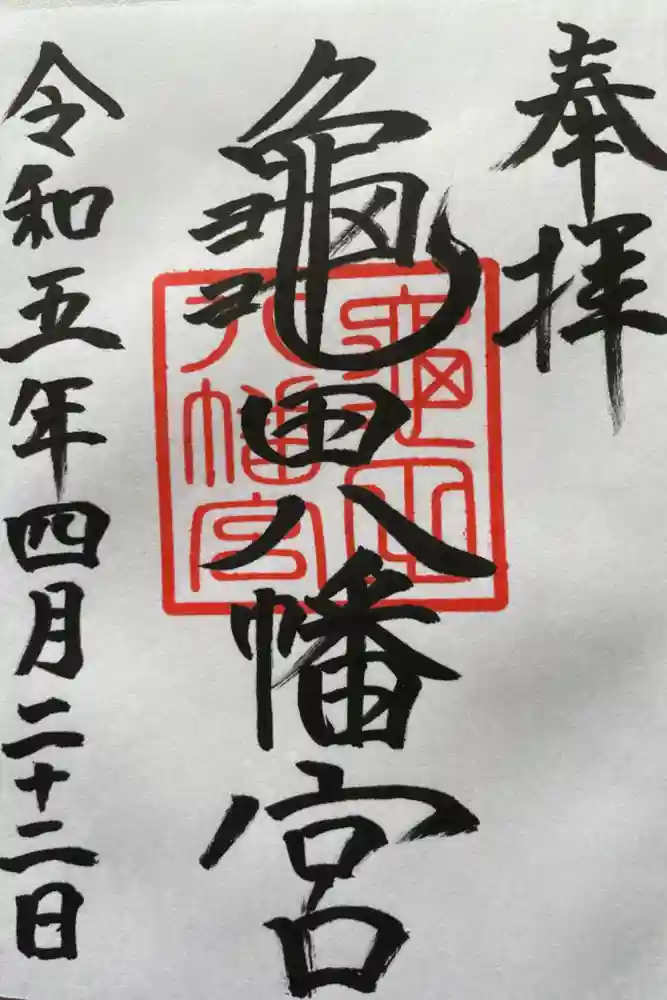 奉拝
龜田八幡宮
龜田
八幡宮
令和五年四月二十二日